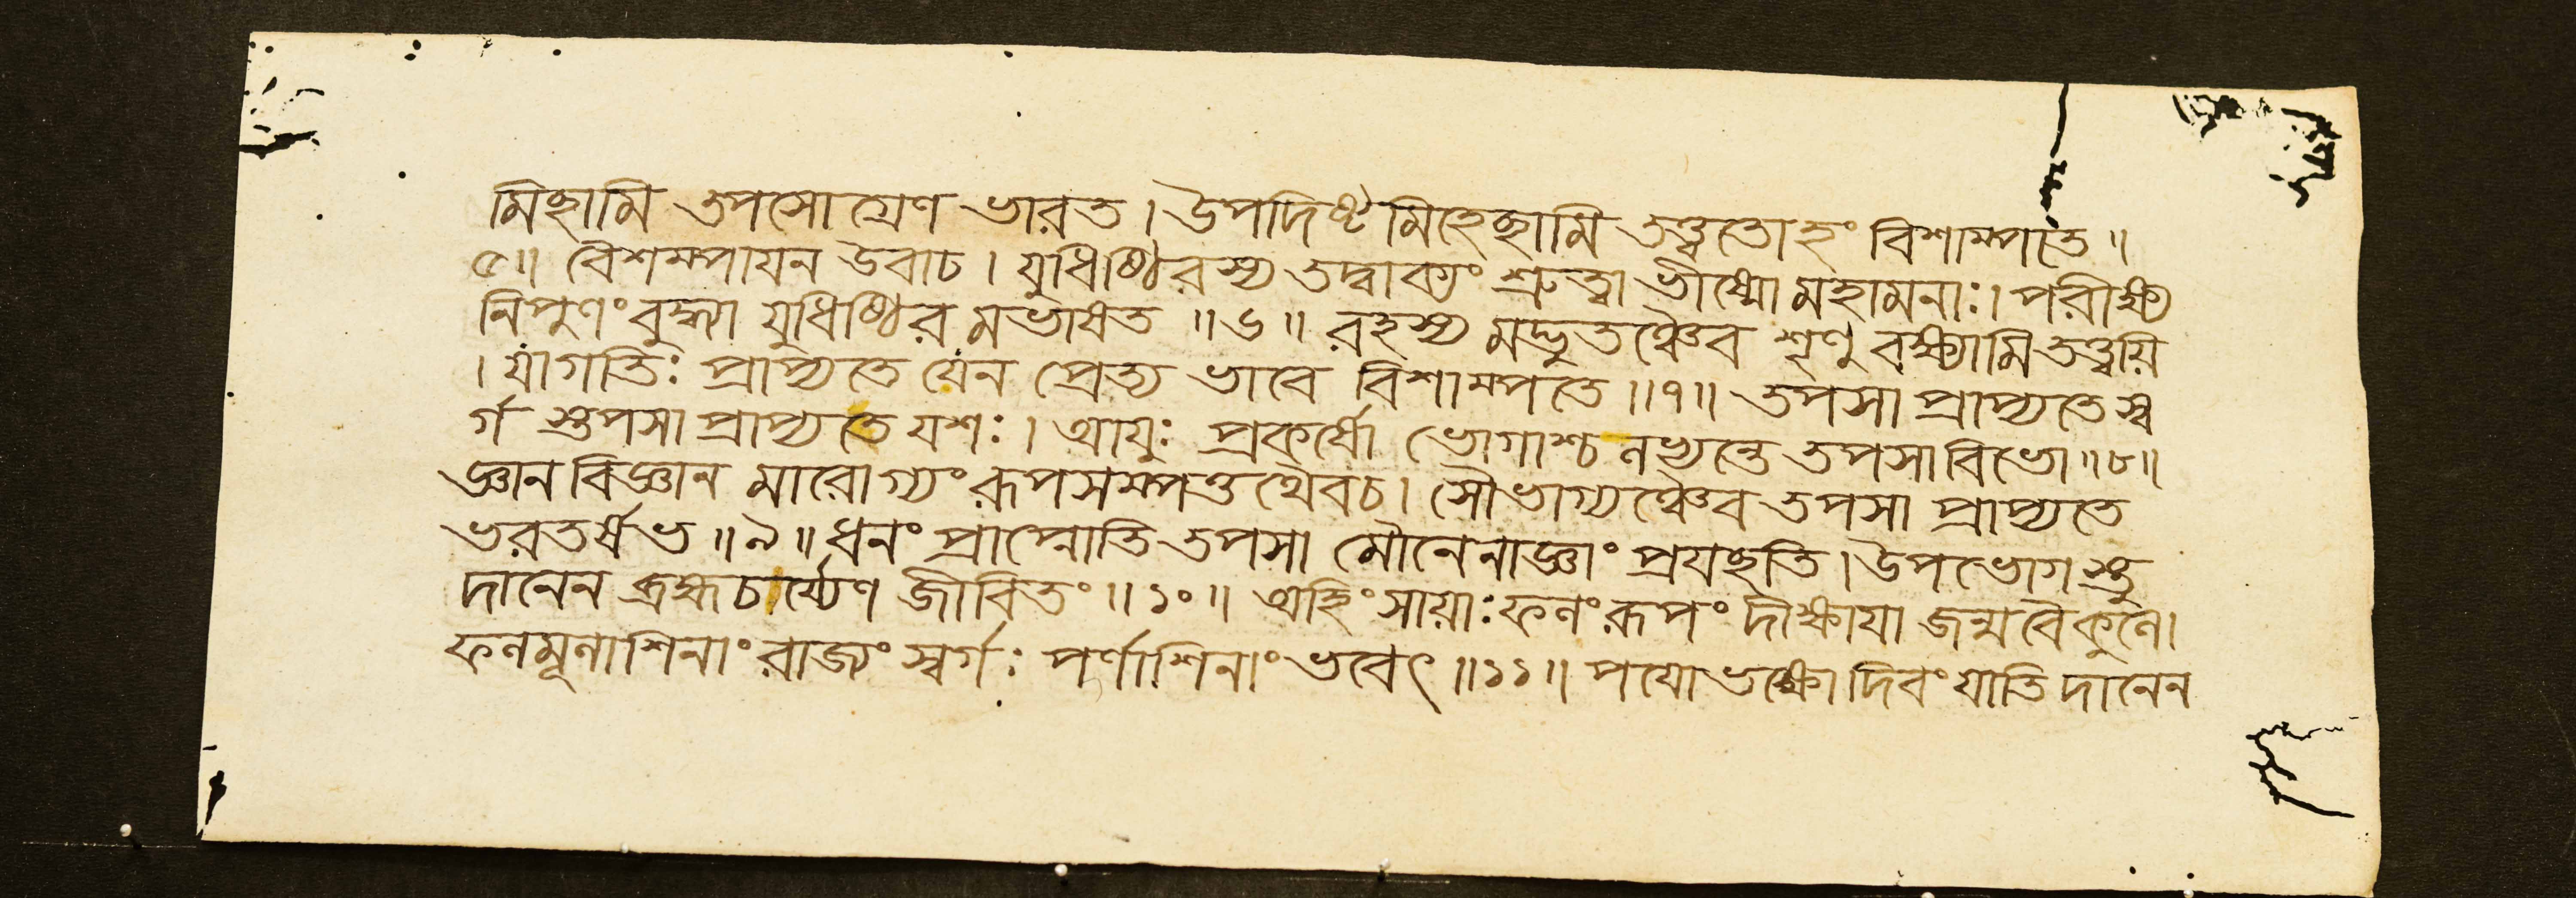 মিচ্ছামি তপসোগ্রেণ ভারত। উপদিষ্টমিহেচ্ছামি তত্ত্বতোহং বিশাম্পতে॥
৫॥ বৈশম্পায়ন উবাচ। যুধিষ্ঠিরস্য তদ্বাক্যং শ্রুত্বা ভীষ্মো মহামনাঃ। পরীক্ষ্য
নিপুণং বুদ্ধ্যা যুধিষ্ঠির মভাষত॥৬॥ রহস্য মদ্ভুতঞ্চৈব শৃণু বক্ষ্যামি তত্ত্বয়ি
। যাগতিঃ প্রাপ্যতে যেন প্রেত্য ভাবে বিশাম্পতে॥৭॥ তপসা প্রাপ্যতে স্ব
র্গ স্তপসা প্রাপ্যতে যশঃ। আয়ুঃ প্রকর্ষো ভোগাশ্চ লভ্যন্তে তপসা বিভো॥৮॥
জ্ঞান বিজ্ঞান মারোগ্যং রূপসম্পত্তথৈবচ। সৌভাগ্যঞ্চৈব তপসা প্রাপ্যতে
ভরতর্ষভ॥৯॥ ধনং প্রাপ্নোতি তপসা মৌনেনাজ্ঞাং প্রযচ্ছতি। উপভোগ স্তু
দানেন ব্রহ্মচর্য্যেণ জীবিতং॥১০॥ অহিংসায়াঃ ফলং রূপং দীক্ষায়া জন্মবৈ কুলে।
ফলমূলাশিনাং রাজ্যং স্বর্গঃ পর্ণাশিনাং ভবেৎ॥১১॥ পয়োভক্ষো দিবং যাতি দানেন